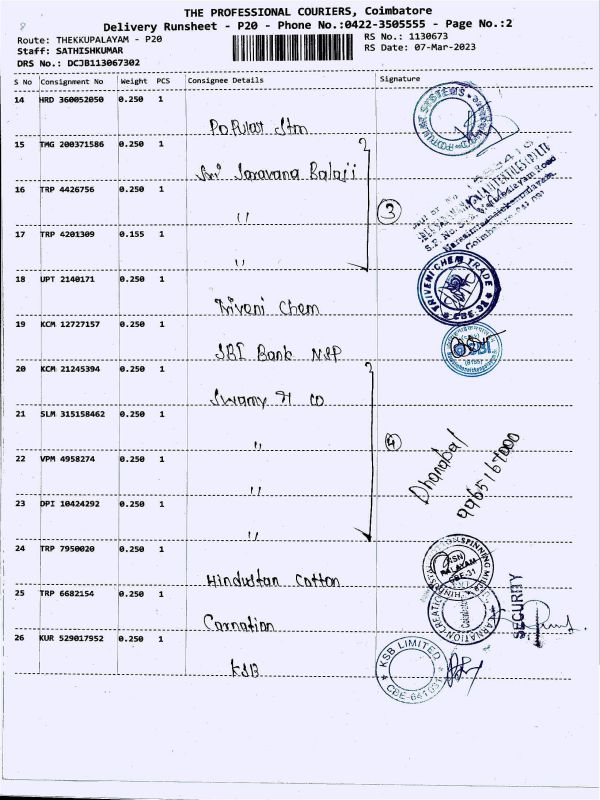 8
THE PROFESSIONAL COURIERS, Coimbatore
Delivery Runsheet - P20 - Phone No.:0422-3505555 - Page No.:2
Route: THEKKUPALAYAM - P20
RS No.: 1130673
Staff: SATHISHKUMAR
RS Date: 07-Mar-2023
DRS No.: DCJB113067302
S No Consignment No Weight PCS Consignee Details Signature
14 HRD 360052050 0.250 1
Popular Stm
15 TMG 200371586 0.250 1
Sri Saravana Balaji
16 TRP 4426756 0.250 1
"
3
17 TRP 4201309 0.155 1
"
18 UPT 2140171 0.250 1
Triveni Chem
TRIVENI CHEM TRADE
19 KCM 12727157 0.250 1
SBI Bank NSP
SBI
20 KCM 21245394 0.250 1
Swamy & Co
21 SLM 315158462 0.250 1
"
4
Dhanabal
9965167000
22 VPM 4958274 0.250 1
"
23 DPI 10424292 0.250 1
"
24 TRP 7950020 0.250 1
Hindustan Cotton
25 TRP 6682154 0.250 1
Carnation
SECURITY
26 KUR 529017952 0.250 1
KSB
KSB LIMITED